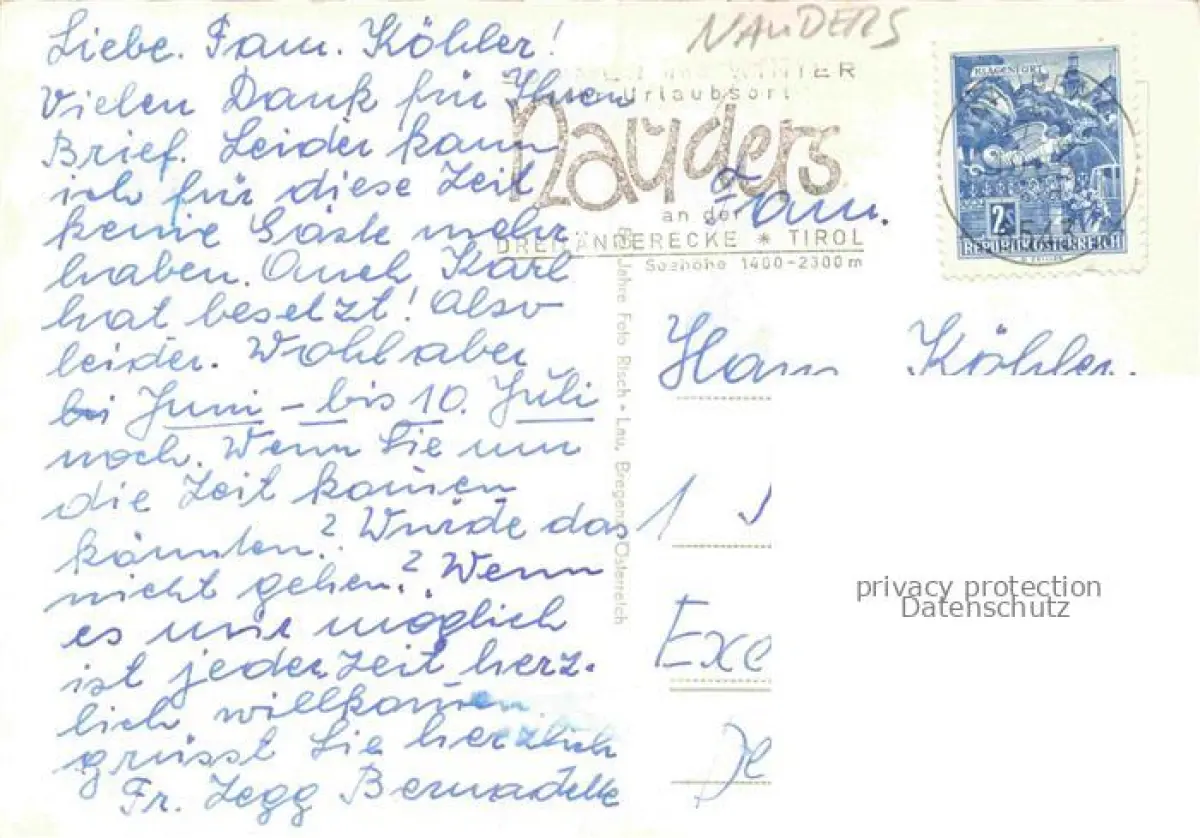 Liebe. Fam. Köhler!
Vielen Dank für Ihren
Brief. Leider kann
ich für diese Zeit
keine Gäste mehr
haben. Auch Karl
hat besetzt! Also
leider. Wohl aber
Juni – bis 10. Juli
noch. Wenn Sie um
die Zeit kom̄en
könnten? Würde das
nicht gehen? Wenn
es nur möglich
ist jederzeit herz-
lich willkom̄en
grüsst Sie herzlich
Fr. Zegg Bernadette
NAUDERS
WINTER
Urlaubsort
Nauders
an der
DREILÄNDERECKE * TIROL
Seehöhe 1400-2300m
KLAGENFORT
2S
REPUBLIK ÖSTERREICH
Jahre Foto Risch-Lau, Bregenz Österreich
Fam.
Hans Köhler.
1
Exc
privacy protection
Datenschutz